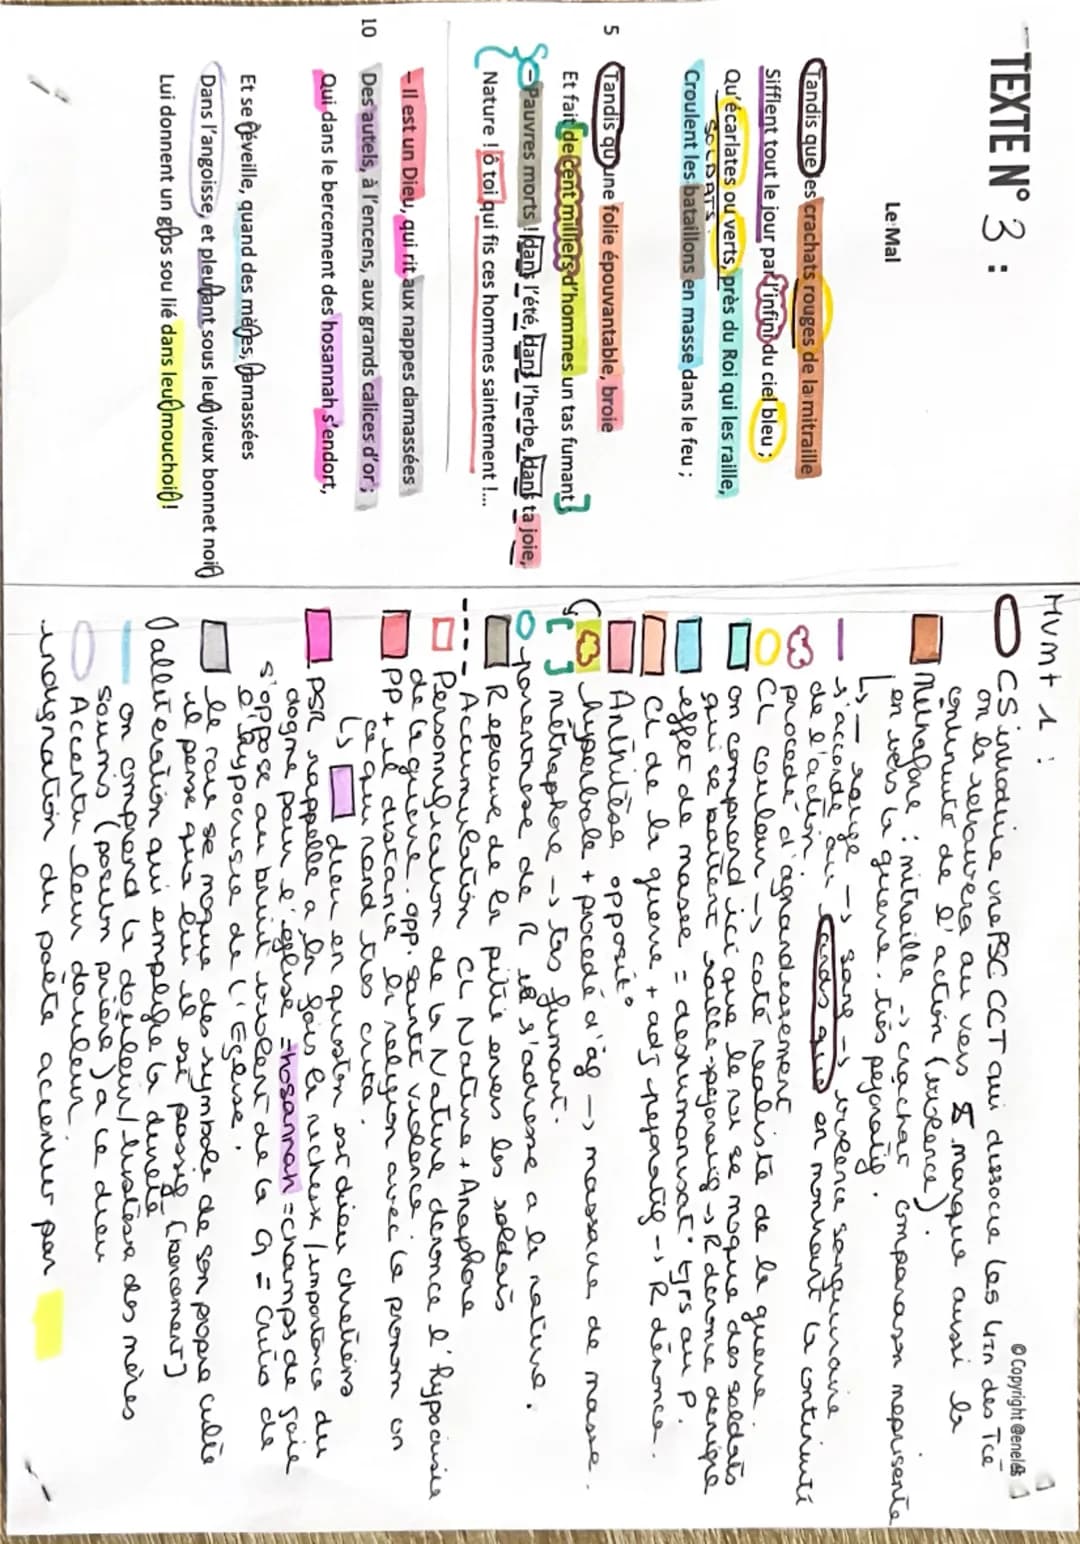 TEXTE N° 3 :
Le Mal
Tandis que les crachats rouges de la mitraille
Sifflent tout le jour par l'infini du ciel bleu ;
Qu'écarlates ou verts, près du Roi qui les raille,
SOLDATS.
Croulent les bataillons en masse dans le feu ;
5 Tandis qu'une folie épouvantable, broie
Et fait de cent milliers d'hommes un tas fumant ;
- Pauvres morts ! dans l'été, dans l'herbe, dans ta joie,
Nature ! ô toi qui fis ces hommes saintement !...
- Il est un Dieu, qui rit aux nappes damassées
10 Des autels, à l'encens, aux grands calices d'or ;
Qui dans le bercement des hosannah s'endort,
Et se réveille, quand des mères, ramassées
Dans l'angoisse, et pleurant sous leur vieux bonnet noir
Lui donnent un gros sou lié dans leur mouchoir !
© Copyright @enel
Mvmt 1 :
CS introduire une PSC CCT qui dissocie les
on la retrouvera au vers 5 marque aussi la
continuité de l'action (violence).
Métaphore : mitraille -> crachat comparaison méprisante
en vers la guerre. très péjoratif.
↳ - rouge -> sang -> violence sanguinaire
s'accorde au tandis que en montrant la continuité
de l'action.
procédé d'agrandissement
CL couleur -> coté réaliste de la guerre.
on comprend ici que le roi se moque des soldats
qui se battent raille -> péjoratif -> R dénonce
effet de masse = déshumanisat° tjrs au P.
CL de la guerre + adj péjoratif -> R dénonce.
Antithèse opposit°
hyperbole + procédé d'ag -> massacre de masse.
métaphore -> tas fumant.
parenthèse de R il s'adresse a la nature.
Reponse de la pitié envers les soldats
Accumulation CL Nature + Anaphore
Personnification de la Nature dénonce l'hypocrisie
de la guerre. opp. sainté violence.
PP + il distance la religion avec le pronom on
ce qui rend très cuta.
↳ dieu en question est dieu chretiens
PSR rappelle a la fois la richesse / importance du
dogme pour l'église = hosannah = champs de joie
s'oppose au bruit violent de la G = Critiq de
l'hypocrisie de l'Eglise.
le roi se moque des symbole de son propre culte
il pense que lui il est passif (bercement)
alliteration qui emplifie la dureté
on comprend la douleur / tristesse des mères
soumis (position prière) a ce dieu
Accentu leur douleur.
indignation du poète accentué par